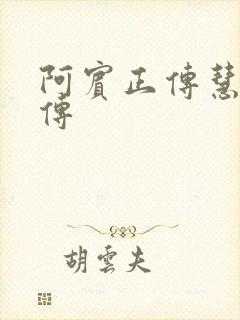 阿賓正傳慧
傳
胡雲夫